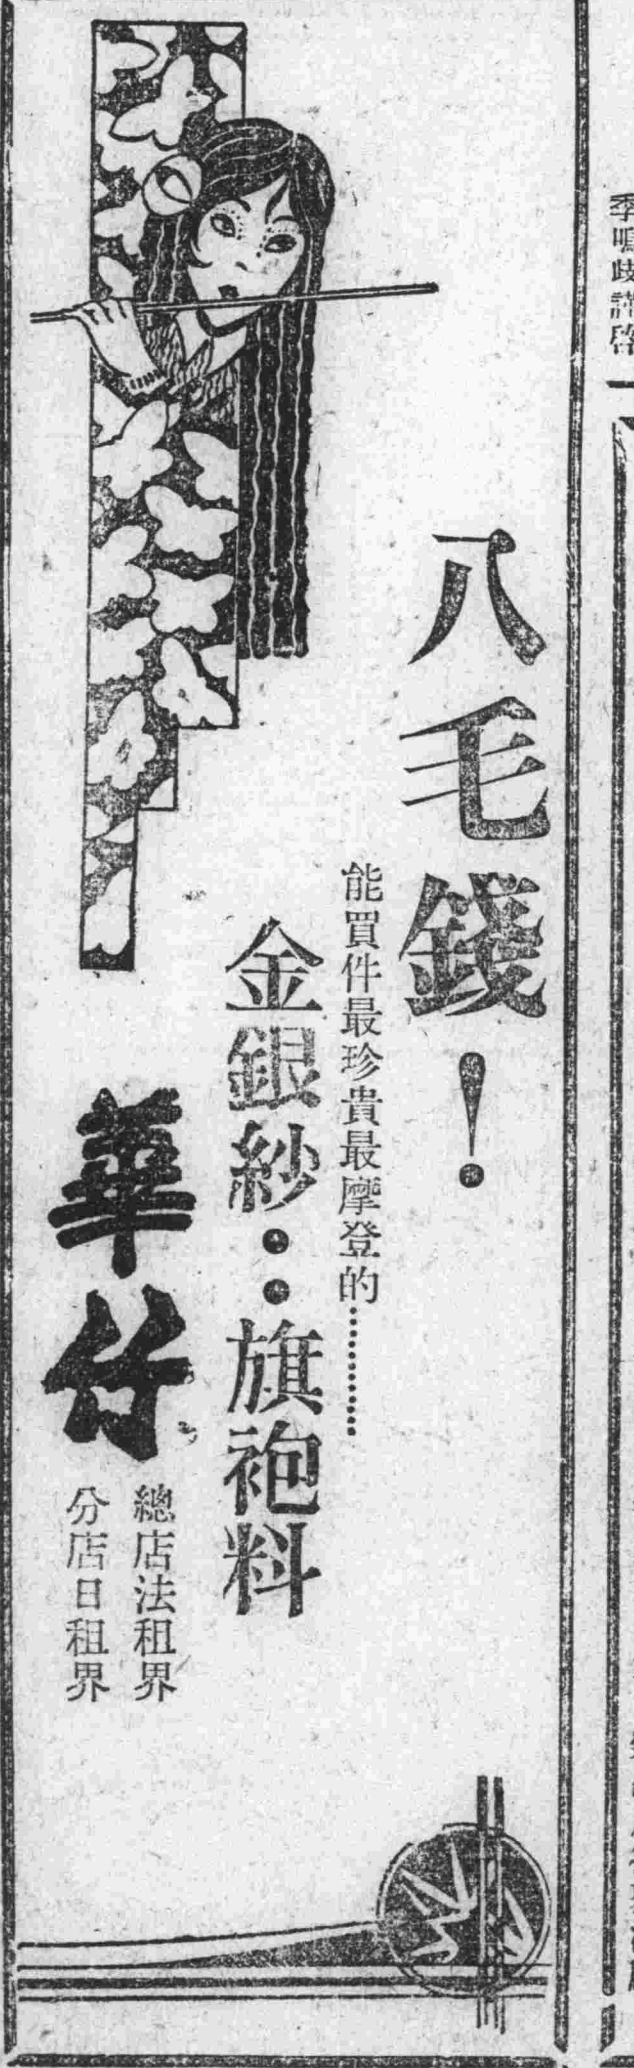 季鳴歧謹啓
八毛錢！
能買件最珍貴最摩登的………
金銀紗：旗袍料
華竹
總店法租界
分店日租界